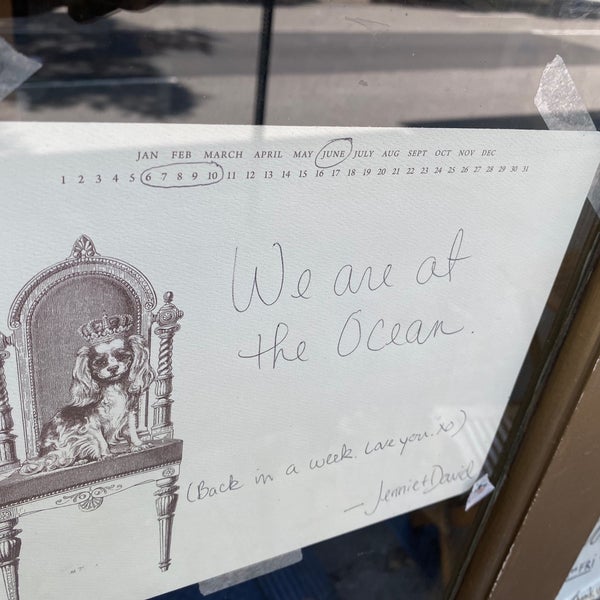 JAN FEB MARCH APRIL MAY JUNE JULY AUG SEPT OCT NOV DEC
1 2 3 4 5 6 7 8 9 10 11 12 13 14 15 16 17 18 19 20 21 22 23 24 25 26 27 28 29 30 31
We are at
the Ocean.
(Back in a week. Love you. xo)
— Jennie + David
FRI